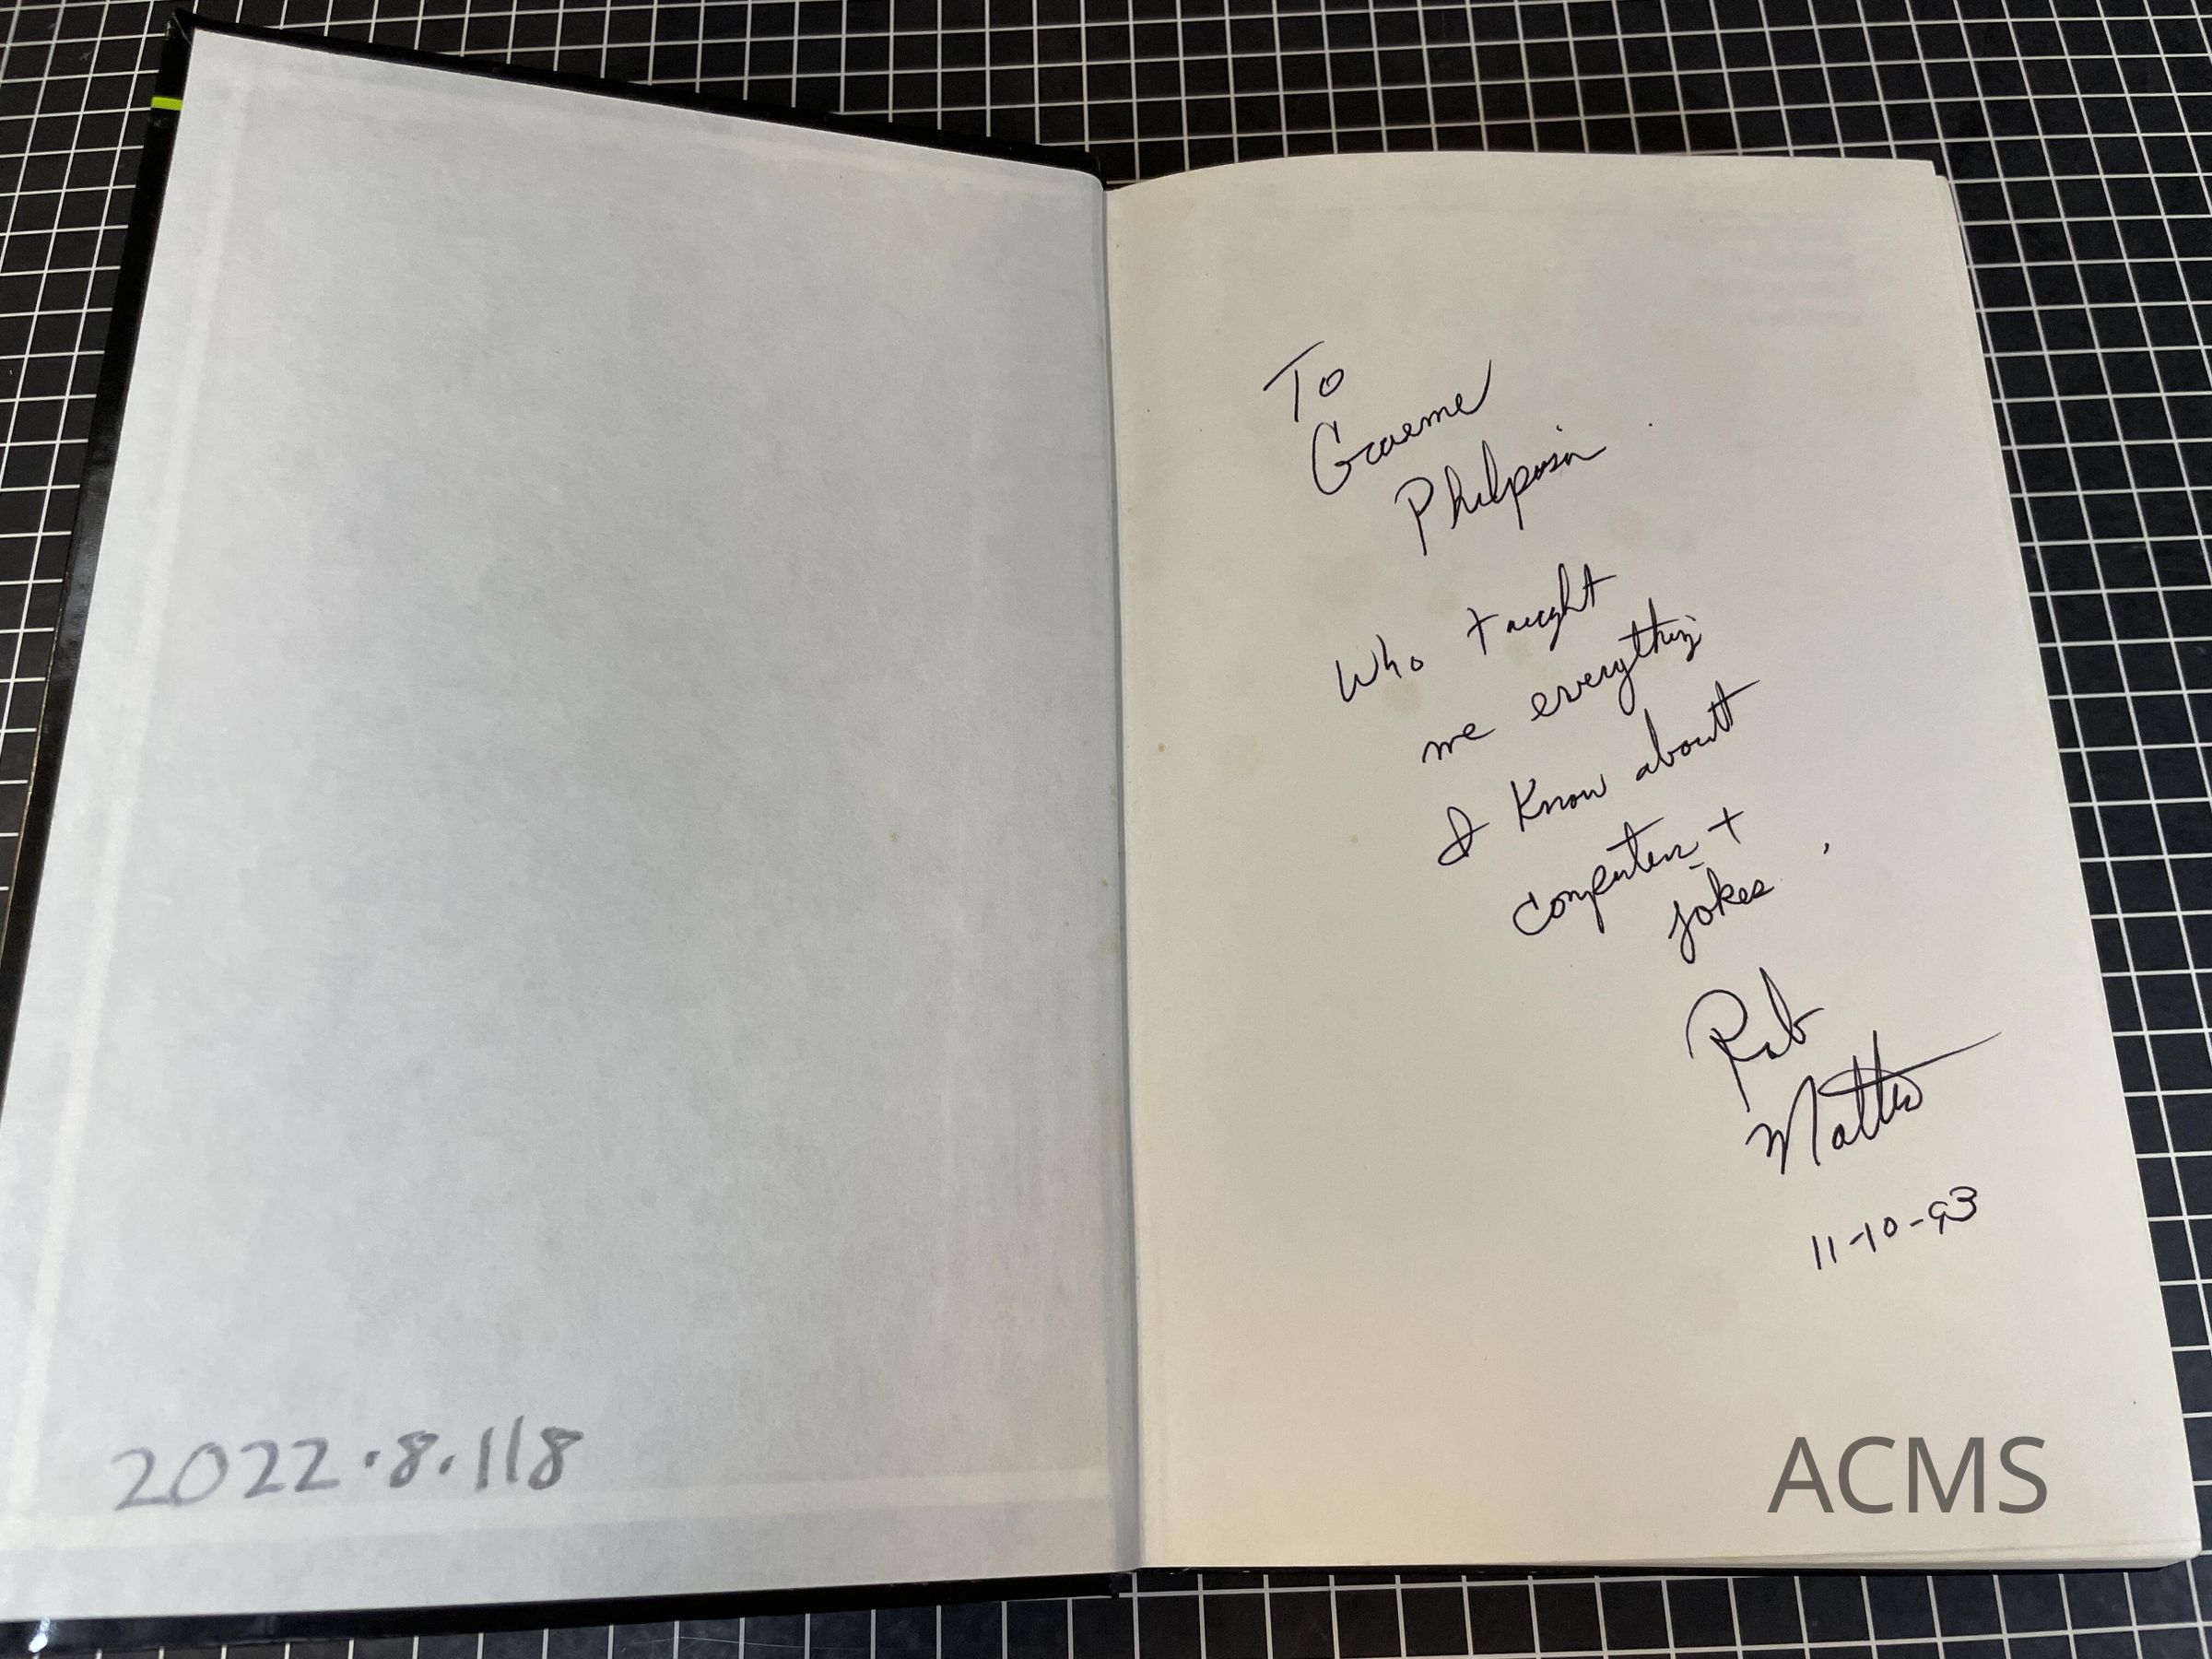 2022.8.118
To
Graeme
Philipson
Who taught
me everything
I know about
computers +
jokes
Rob
11-10-93
ACMS